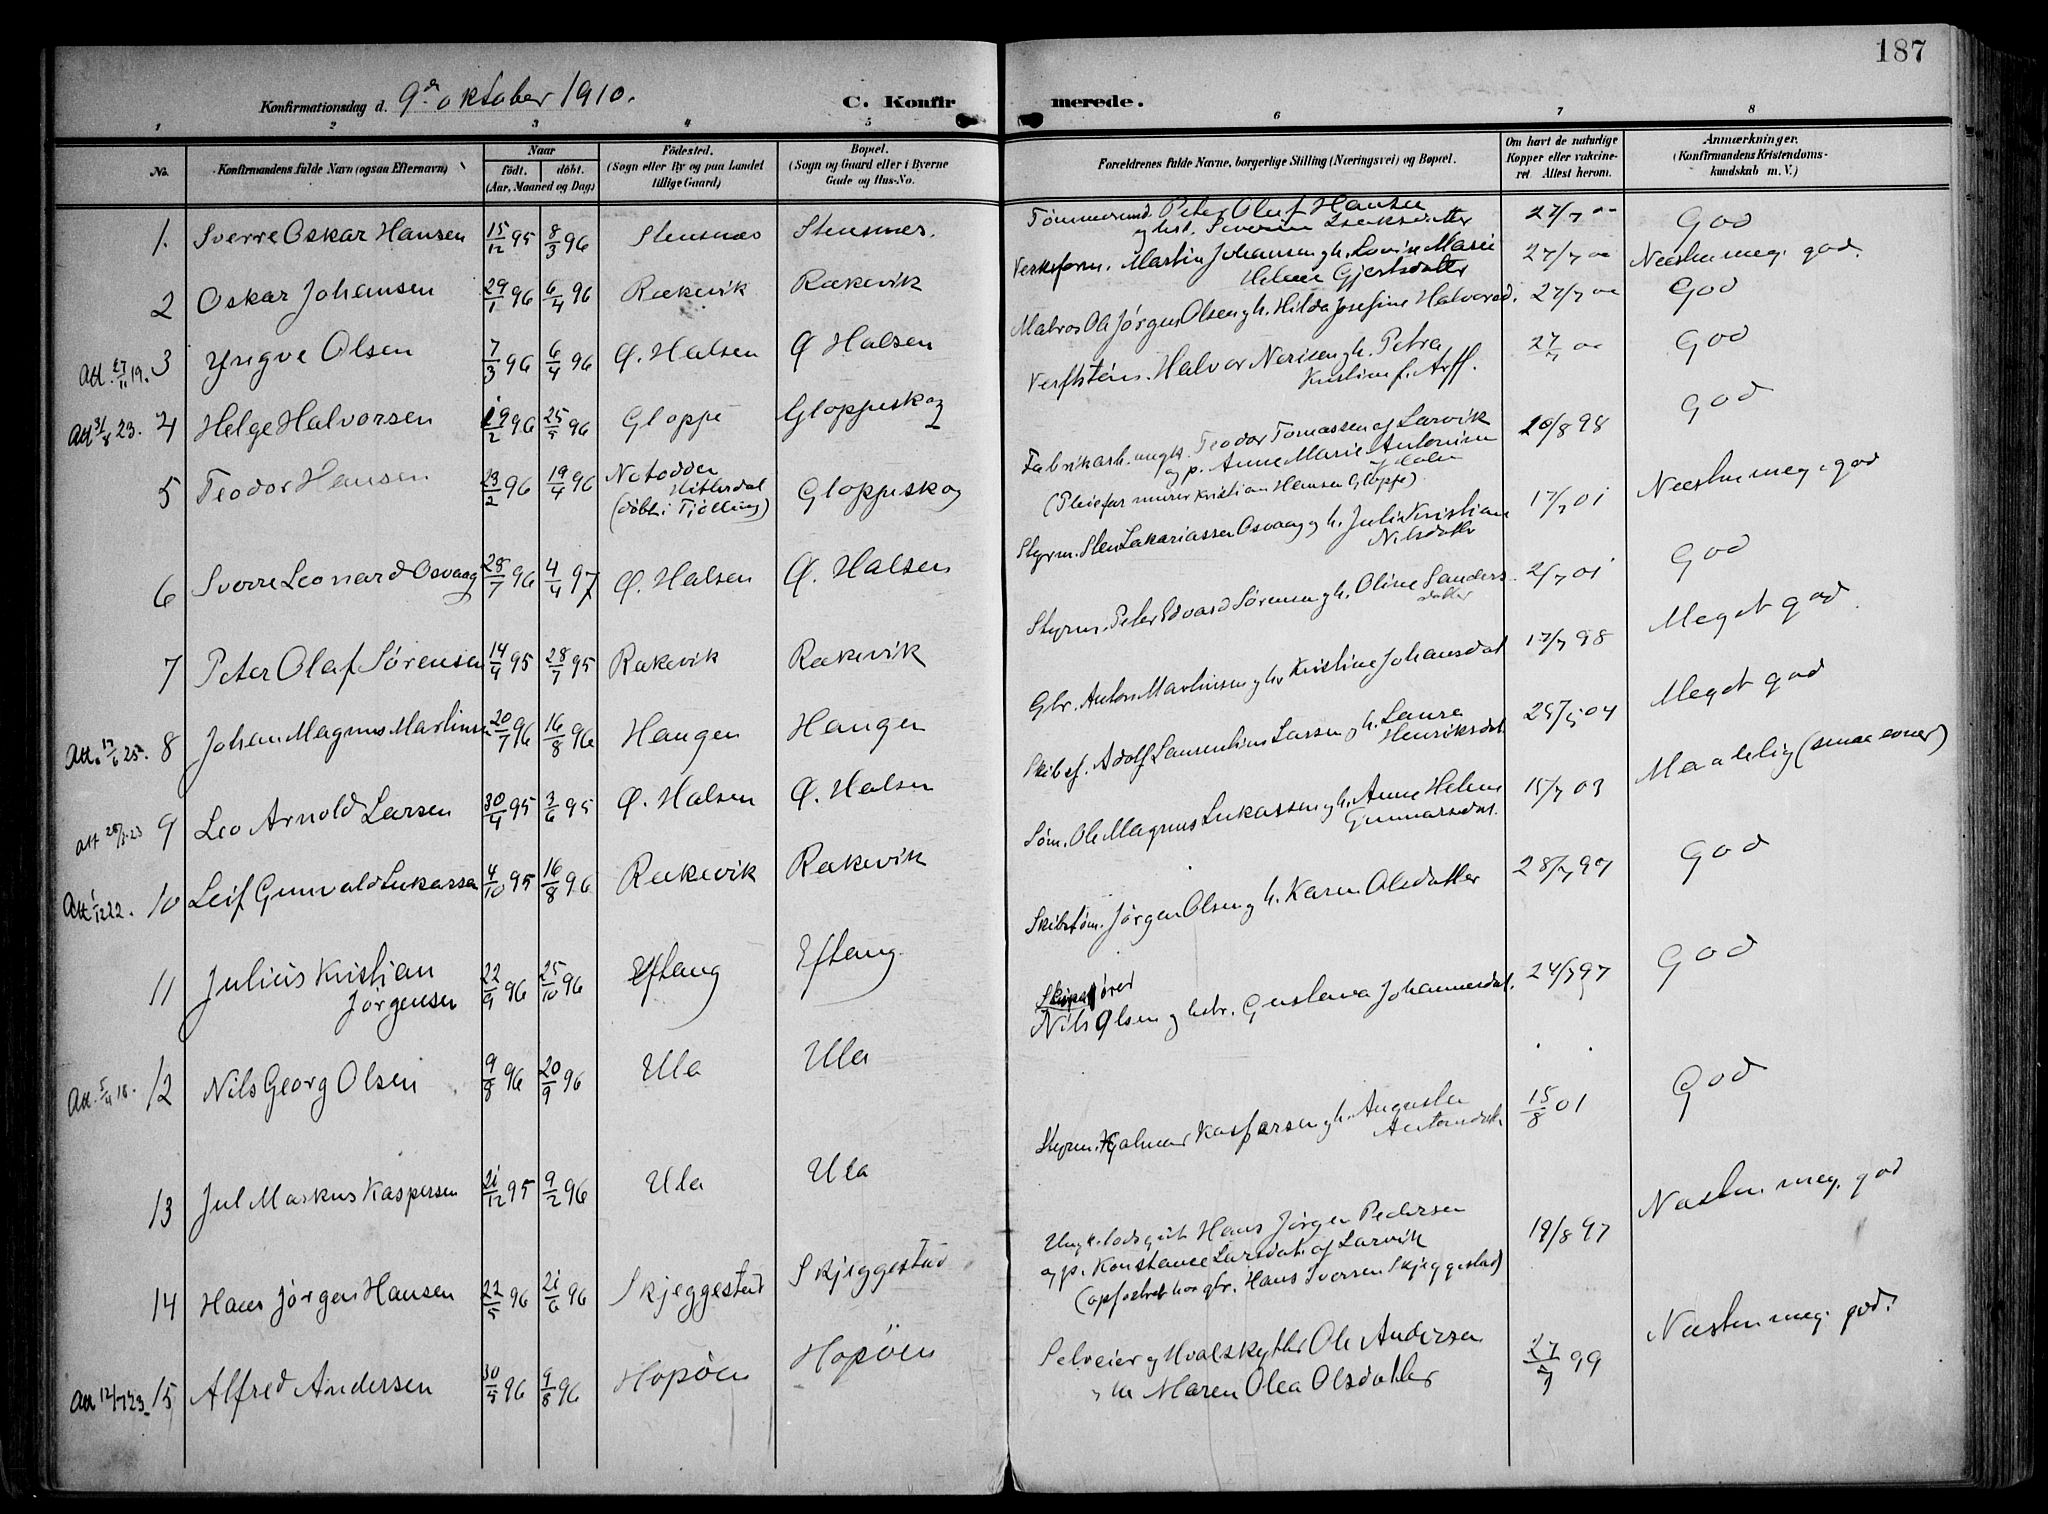 187
Konfirmationsdag d. 9de oktober 1910. C. Konfir merede.
1 2 3 4 5 6 7 8
No. Konfirmandens fulde Navn (ogsaa Efternavn) Naar födt. döbt. (Aar, Maaned og Dag) Födested. (Sogn eller By og paa Landet tillige Gaard) Bopæl. (Sogn og Gaard eller i Byerne Gade og Hus-No. Forældrenes fulde Navne, borgerlige Stilling (Næringsvei) og Bopæl. Om havt de naturlige Kopper eller vakcineret Attest herom. Anmærkninger. (Konfirmandens Kristendomskundskab m. V.)
1. Sverre Oskar Hansen 15/12 95 8/3 96 Stensnæs Stensnæs. Tömmermd. Peter Oluf Hansen
og hst. Severine Isaksdatter 27/7 00 God
2 Oskar Johansen 29/1 96 6/4 96 Rækevik Rækevik Verksform. Martin Johansen og h. Lovise Marie
Helene Gjertsdatter 27/7 00 Næsten meg. god.
Att. 27/11 19. 3 Yngve Olsen 7/3 96 6/4 96 Ø. Halsen Ø Halsen Matros Ole Jørgen Olsen og h. Hilda Josefine Halvorsd. 27/7 00 God
Att 31/8 23. 4 Helge Halvorsen 19/2 96 25/5 96 Gloppe Gloppeskog Verftstöm. Halvor Nerisen og h. Petra
Kristine f. Arff. 27/7 00 God
5 Teodor Hansen 23/2 96 19/4 96 Notodden
Hitterdal
(döbt i Tjölling) Gloppeskog Fabrikarb. ungk. Teodor Tomassen af Larvik
og p. Anne Marie Antonsen
af Halsen
(Pleiefar murer Kristian Hansen Gloppe) 20/8 98 God
6 Sverre Leonard Osvaag 28/7 96 4/4 97 Ø. Halsen Ø. Halsen Styrm. Sten Sakariassen Osvaag og h. Julie Kristiane
Nilsdatter 17/7 01 Næsten meg. god
7 Peter Olaf Sørensen 14/4 95 28/7 95 Rækevik Rækevik Styrm. Peter Edvard Sørensen og h. Oline Sanders-
datter 2/7 01 God
Att. 17/6 25. 8 Johan Magnus Martinsen 20/7 96 16/8 96 Haugen Haugen Gbr. Anton Martinsen og h. Kristine Johansdat 17/7 98 Meget god
Att 28/3 23 9 Leo Arnold Larsen 30/4 95 3/6 95 Ø. Halsen Ø. Halsen Skibsf. Adolf Laurentius Larsen og h. Laura
Henriksdat 25/5 04 Meget god
Att 1/12 22. 10 Leif Gunvald Lukassen 4/10 95 16/8 96 Rækevik Rækevik Søm. Ole Magnus Lukassen og h. Anne Helene
Gunnarsdat. 15/7 03 Maadelig (smaa evner)
11 Julius Kristian
Jørgensen 22/9 96 25/10 96 Eftang Eftang. Skibstøm. Jørgen Olsen og h. Karen Olsdatter 28/7 97 God
Att. 5/4 18. 12 Nils Georg Olsen 9/8 96 20/9 96 Ula Ula
Nils Olsen og hstr. Gustava Johannesdat. 24/7 97 God
13 Jul Markus Kaspersen 21/12 95 9/2 96 Ula Ula Styrm. Hjalmar Kaspersen og h. Augusta
Antonsdatt. 15/8 01 God
14 Hans Jørgen Hansen 22/5 96 21/6 96 Skjeggestad Skjeggestad Ungk. lodsgut Hans Jørgen Pedersen
og p. Konstance Larsdat. af Larvik
(opfostret hos gbr. Hans Iversen Skjeggestad) 19/8 97 Næsten meg. god
Att 12/7 23. 15 Alfred Andersen 30/5 96 9/8 96 Hopöen Hopöen Selveier og Hvalskytter Ole Andersen
Maren Olea Olsdatter 27/7 99 Næsten meg. god.